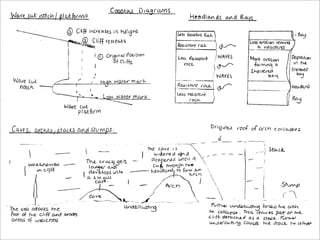 Coastal Diagrams
Wave cut notch / platforms
③ Cliff increases in height
② Cliff retreats
① Original Position
of Cliffs
Wave cut
notch
High water mark
Low water mark
Wave cut
platform
Headlands and Bays
Less Resistant Rock
Resistant rock
Less Resistant
rock
Resistant rock
Less resistant
rock
Waves
Waves
Bay
Less erosion leaving
a headland
More erosion
forming a
sheltered
bay
Deposition
in the
sheltered
bay
Bay
Caves, arches, stacks and stumps
Original roof of arch collapses
Weaknesses
in cliff
The crack gets
larger and
develops into
a small
cave
The cave is
widened and
deepened until it
cuts through the
headland to form an
arch
Stack
Stump
Arch
Cave
Undercutting
The sea attacks the
foot of the cliff and erodes
areas of weakness
Further undercutting forces the arch
to collapse. This leaves part of the
cliff detached as a stack. Further
undercutting causes the stack to collapse